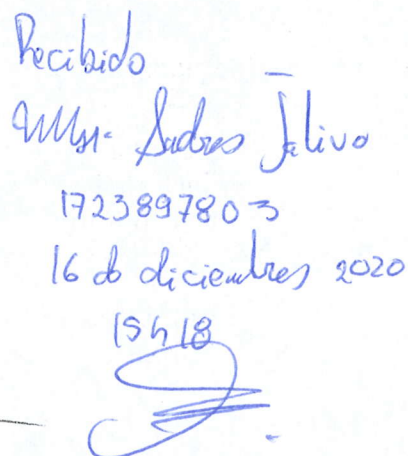 Recibido
Msr. Andres Jativo
1723897803
16 de diciembres 2020
15h18